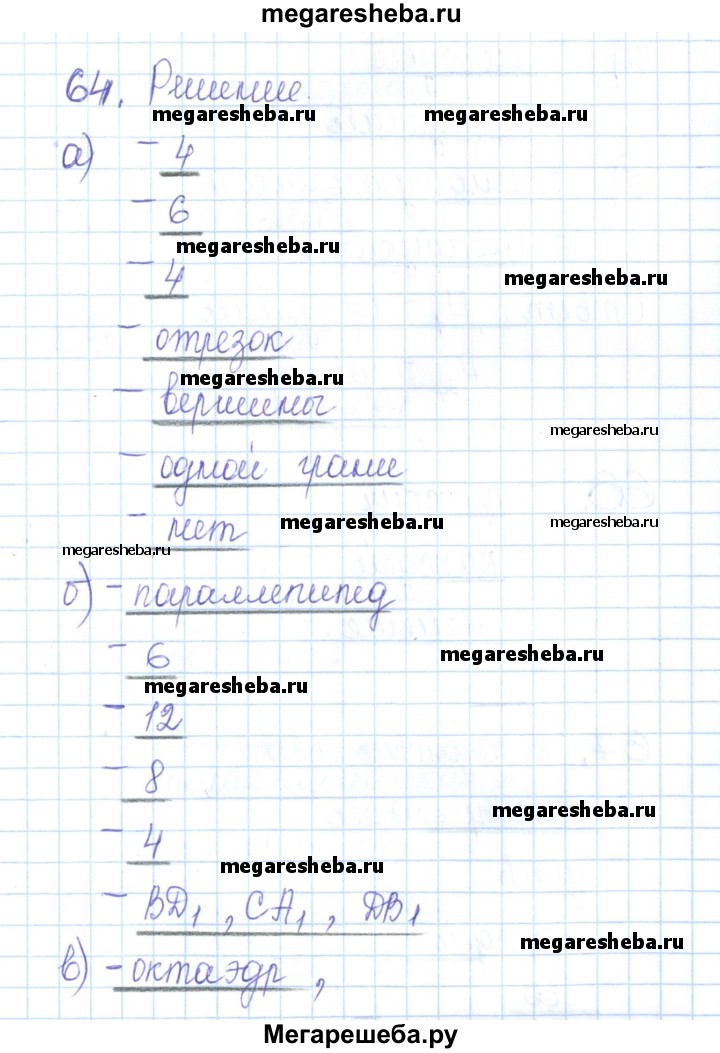 megaresheba.ru
64. Решение.
megaresheba.ru megaresheba.ru
а) - 4
- 6
megaresheba.ru
megaresheba.ru
- 4
- отрезок
megaresheba.ru
- вершины
megaresheba.ru
- одной грани
- нет megaresheba.ru megaresheba.ru
megaresheba.ru
б) - параллепипед
- 6 megaresheba.ru
megaresheba.ru
- 12
- 8
megaresheba.ru
- 4
megaresheba.ru
- BD₁, CA₁, DB₁
megaresheba.ru
в) - октаэдр,
Мегарешеба.ру